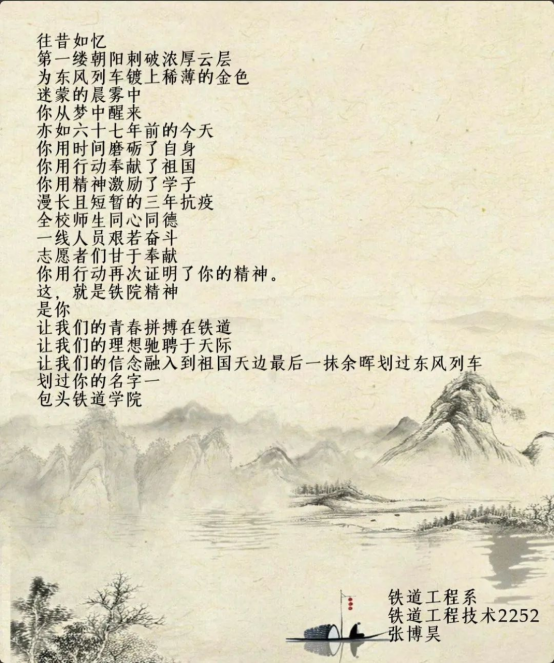 往昔如忆
第一缕朝阳刺破浓厚云层
为东风列车镀上稀薄的金色
迷蒙的晨雾中
你从梦中醒来
亦如六十七年前的今天
你用时间磨砺了自身
你用行动奉献了祖国
你用精神激励了学子
漫长且短暂的三年抗疫
全校师生同心同德
一线人员艰若奋斗
志愿者们甘于奉献
你用行动再次证明了你的精神。
这，就是铁院精神
是你
让我们的青春拼搏在铁道
让我们的理想驰聘于天际
让我们的信念融入到祖国天边最后一抹余晖划过东风列车
划过你的名字一
包头铁道学院
铁道工程系
铁道工程技术2252
张博昊